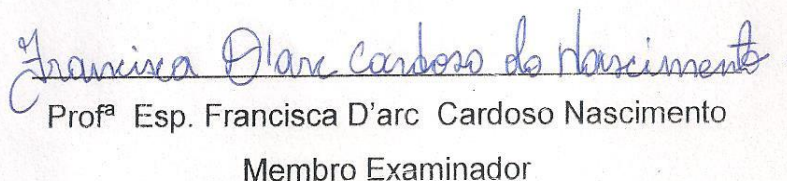 Francisca D'arc Cardoso do Nascimento
Profª Esp. Francisca D'arc Cardoso Nascimento
Membro Examinador